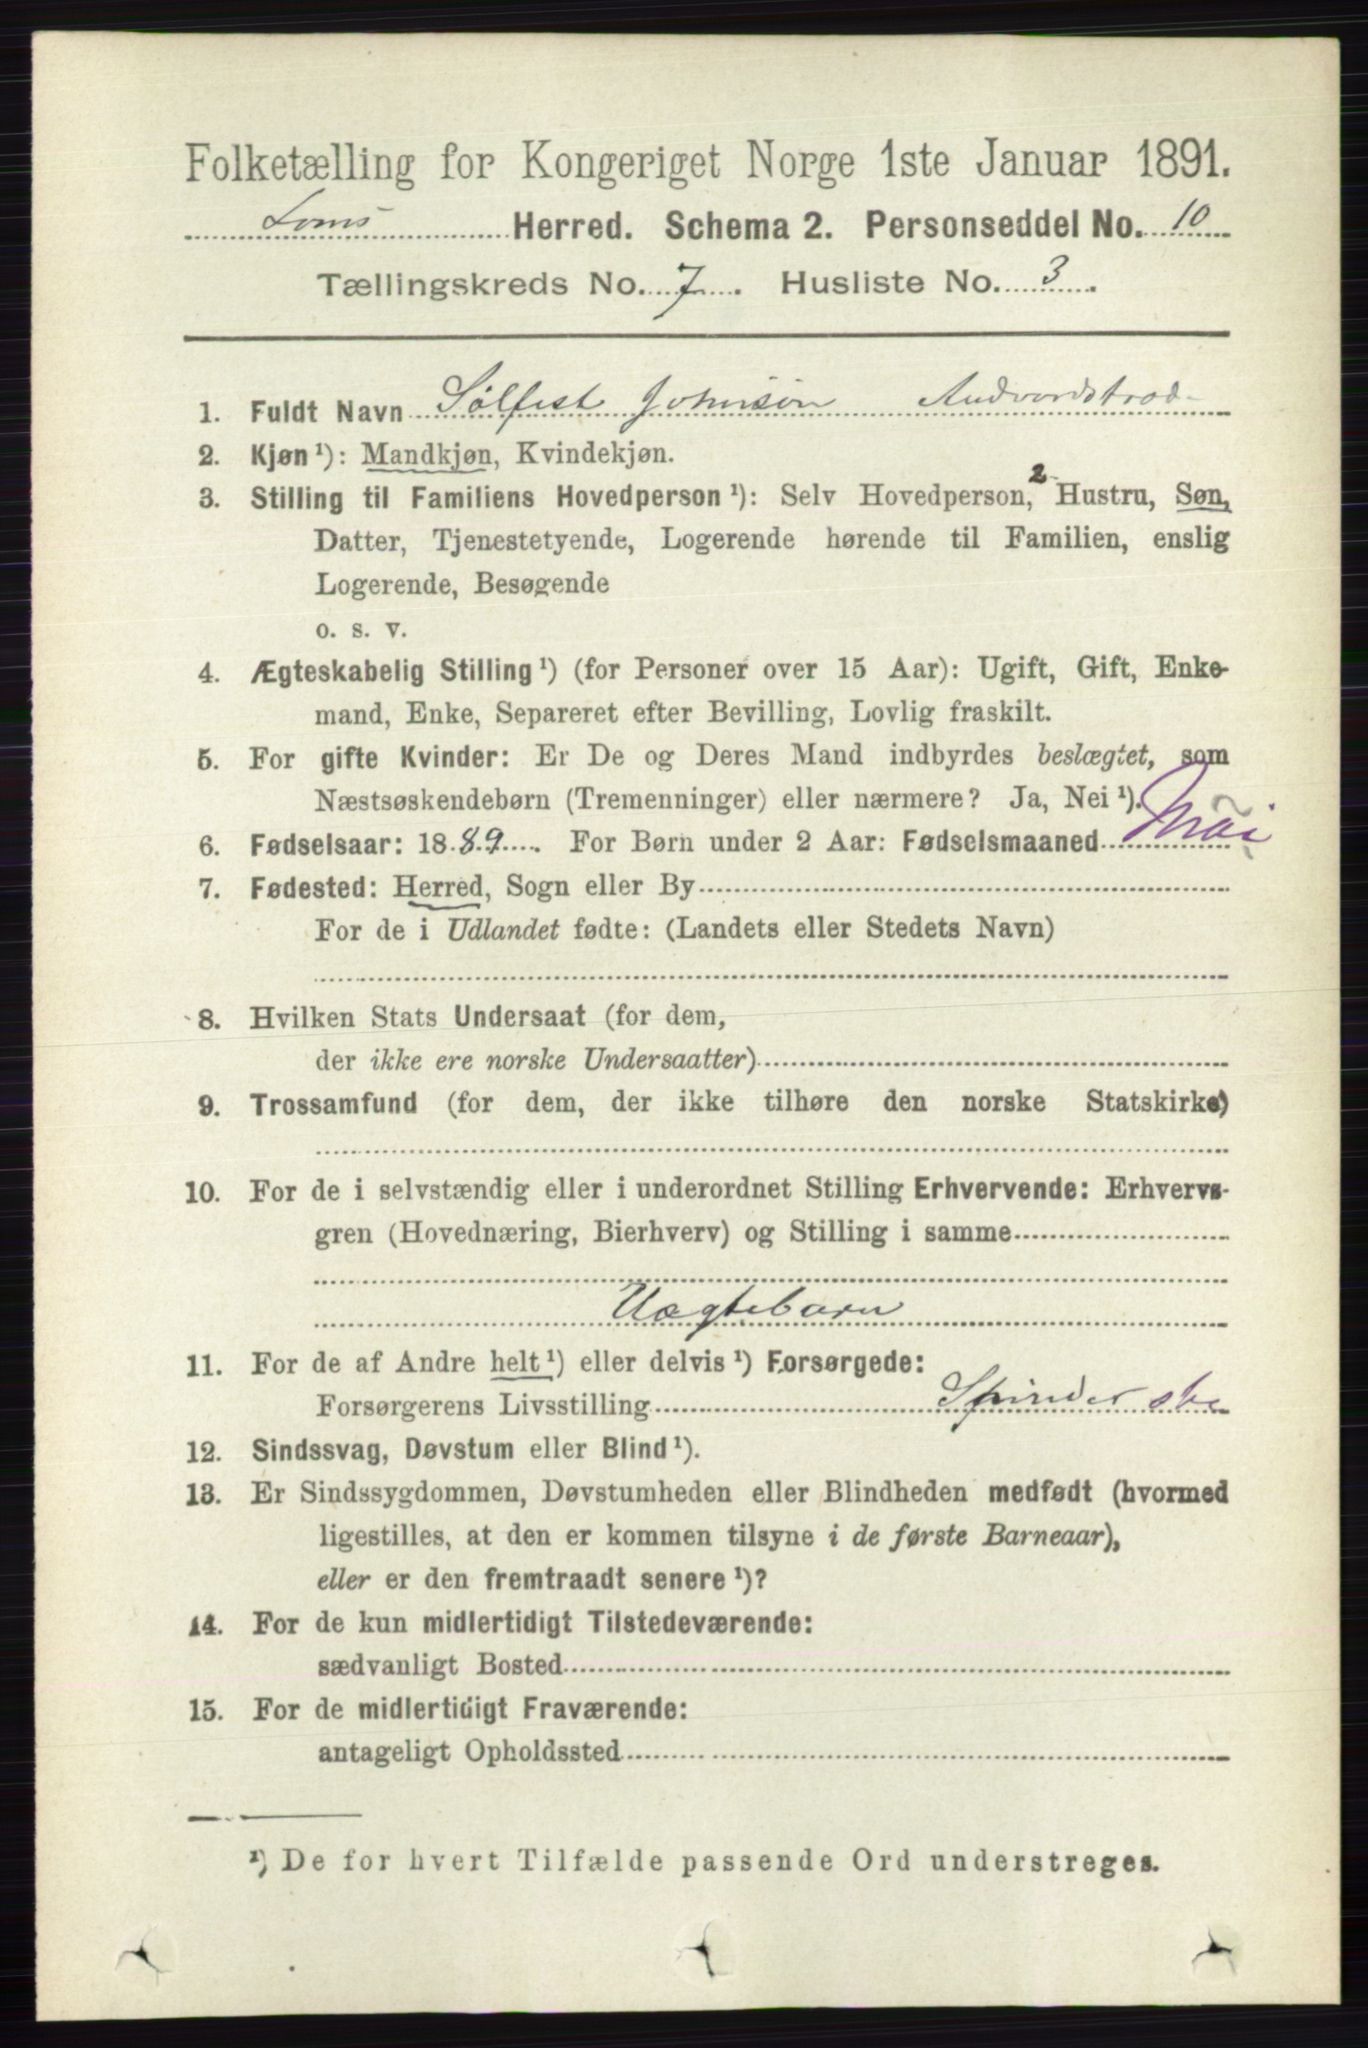 Folketælling for Kongeriget Norge 1ste Januar 1891.
Loms Herred. Schema 2. Personseddel No. 10
Tællingskreds No. 7. Husliste No. 3.
1. Fuldt Navn Sølfest Johnsøn Andvordstrød
2. Kjøn ¹): Mandkjøn, Kvindekjøn.
2
3. Stilling til Familiens Hovedperson ¹): Selv Hovedperson, Hustru, Søn,
Datter, Tjenestetyende, Logerende hørende til Familien, enslig
Logerende, Besøgende
o. s. v.
4. Ægteskabelig Stilling ¹) (for Personer over 15 Aar): Ugift, Gift, Enke-
mand, Enke, Separeret efter Bevilling, Lovlig fraskilt.
5. For gifte Kvinder: Er De og Deres Mand indbyrdes beslægtet, som
Næstsøskendebørn (Tremenninger) eller nærmere? Ja, Nei ¹).
6. Fødselsaar: 1889. For Børn under 2 Aar: Fødselsmaaned Mai
7. Fødested: Herred, Sogn eller By
For de i Udlandet fødte: (Landets eller Stedets Navn)
8. Hvilken Stats Undersaat (for dem,
der ikke ere norske Undersaatter)
9. Trossamfund (for dem, der ikke tilhøre den norske Statskirke)
10. For de i selvstændig eller i underordnet Stilling Erhvervende: Erhvervs-
gren (Hovednæring, Bierhverv) og Stilling i samme
Uægtebarn
11. For de af Andre helt ¹) eller delvis ¹) Forsørgede:
Forsørgerens Livsstilling Spinderske
12. Sindssvag, Døvstum eller Blind ¹).
13. Er Sindssygdommen, Døvstumheden eller Blindheden medfødt (hvormed
ligestilles, at den er kommen tilsyne i de første Barneaar),
eller er den fremtraadt senere ¹)?
14. For de kun midlertidigt Tilstedeværende:
sædvanligt Bosted
15. For de midlertidigt Fraværende:
antageligt Opholdssted
¹) De for hvert Tilfælde passende Ord understreges.